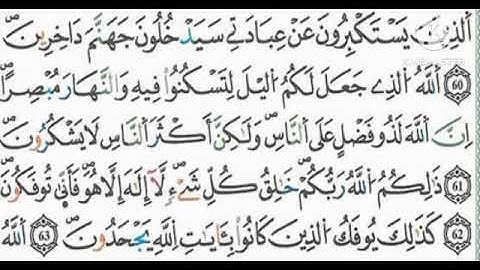 الذِينَ يَسْتَكْبِرُونَ عَنْ عِبَادَتِے سَيَدْخُلُونَ جَهَنَّمَ دَاخِرِينَ
60 اَللَّهُ الذِے جَعَلَ لَكُمُ الَيْلَ لِتَسْكُنُوا فِيهِ وَالنَّهَارَ مُبْصِراً
اِنَّ اَللَّهَ لَذُو فَضْلٍ عَلَى النَّاسِ وَلَكِنَّ أَكْثَرَ النَّاسِ لَا يَشْكُرُونَ
61 ذَلِكُمُ اللَّهُ رَبُّكُمْ خَلِقُ كُلِّ شَےْءٍ لَّا إِلَهَ إِلَّا هُوَ فَأَنّ۪ي تُوفَكُونَ
62 كَذَلِكَ يُوفَكُ الذِينَ كَانُوا بِـَٔايَتِ اِللَّهِ يَجْحَدُونَ 63 اَللَّهُ